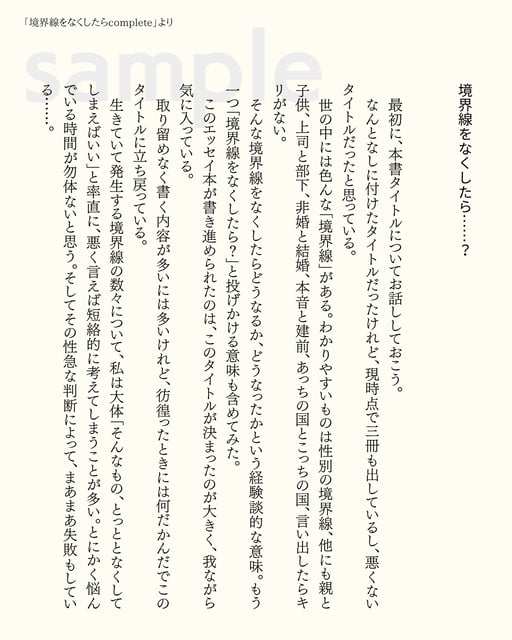 「境界線をなくしたらcomplete」より
sample
境界線をなくしたら……？
最初に、本書タイトルについてお話ししておこう。
なんとなしに付けたタイトルだったけれど、現時点で三冊も出しているし、悪くない
タイトルだったと思っている。
世の中には色んな「境界線」がある。わかりやすいものは性別の境界線、他にも親と
子供、上司と部下、非婚と結婚、本音と建前、あっちの国とこっちの国、言い出したらキ
リがない。
そんな境界線をなくしたらどうなるか、どうなったかという経験談的な意味。もう
一つ「境界線をなくしたら？」と投げかける意味も含めてみた。
このエッセイ本が書き進められたのは、このタイトルが決まったのが大きく、我ながら
気に入っている。
取り留めなく書く内容が多いには多いけれど、彷徨ったときには何だかんだでこの
タイトルに立ち戻っている。
生きていて発生する境界線の数々について、私は大体「そんなもの、とっととなくして
しまえばいい」と率直に、悪く言えば短絡的に考えてしまうことが多い。とにかく悩ん
でいる時間が勿体ないと思う。そしてその性急な判断によって、まあまあ失敗もしてい
る……。